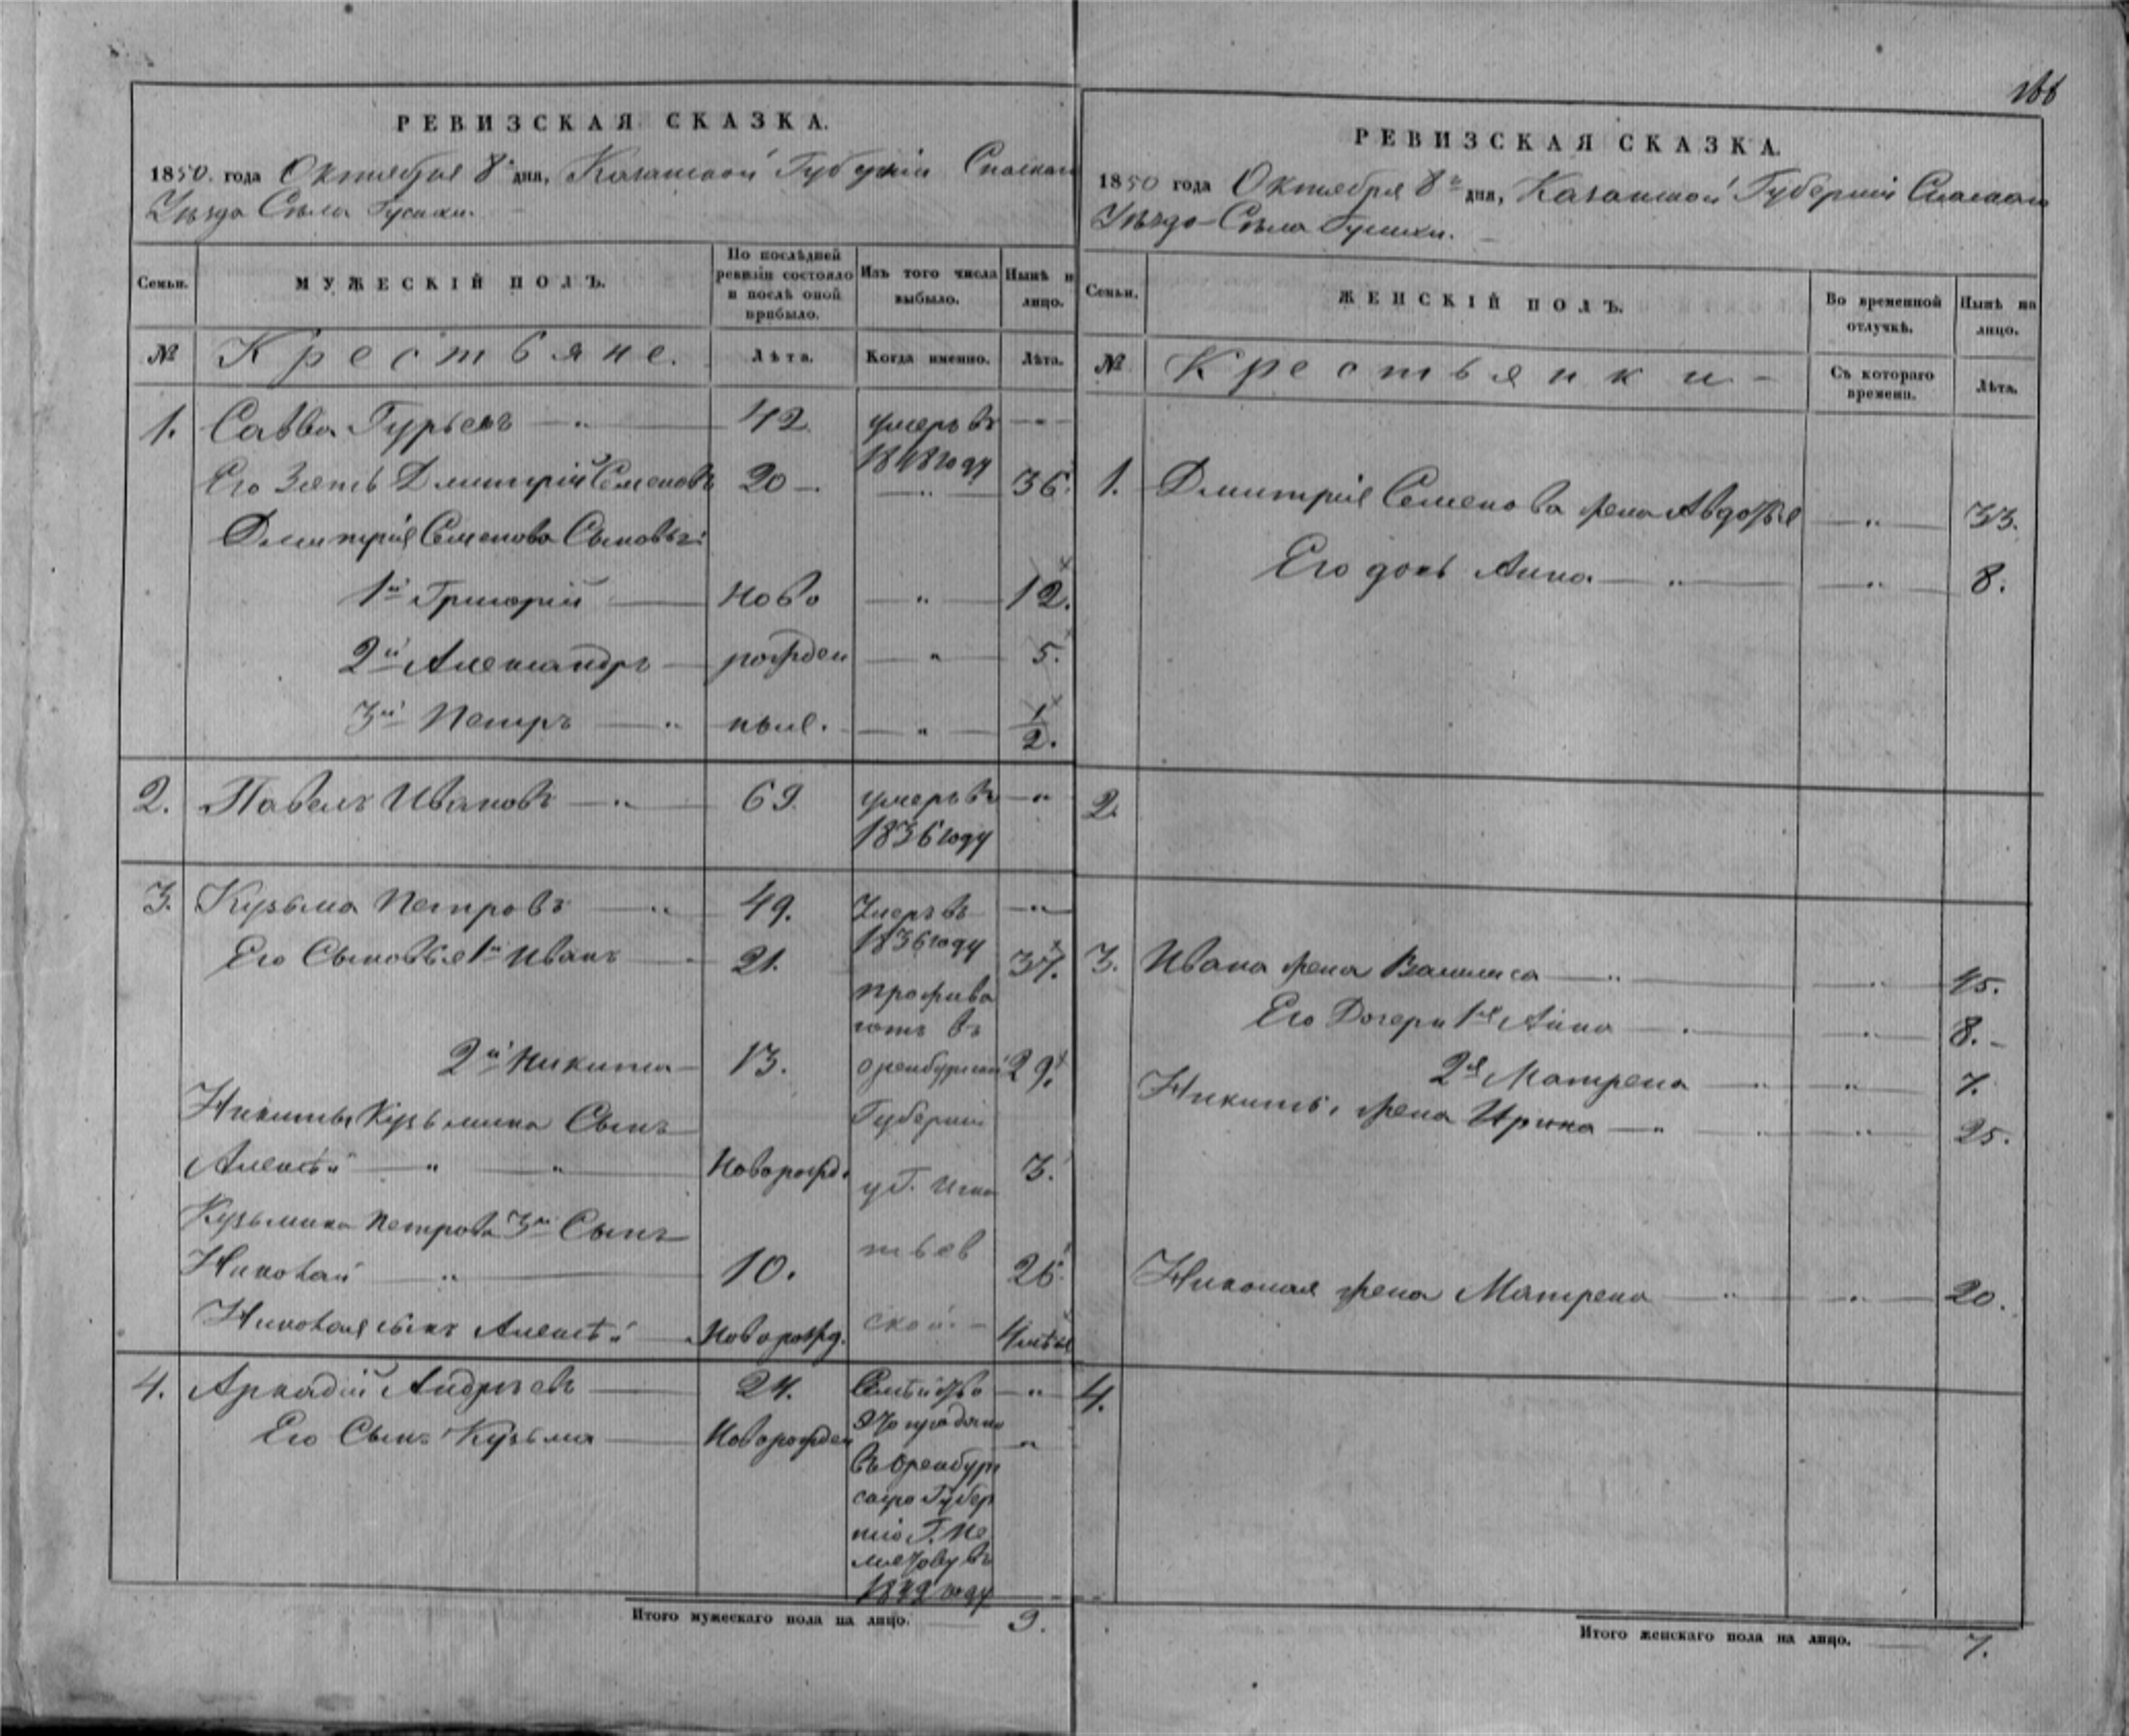 166
РЕВИЗСКАЯ СКАЗКА.
1850. года Октября 8го дня, Казанской Губерніи Спаскаго
Уѣзда Села Гусихи.
Семьи. МУЖЕСКІЙ ПОЛЪ. По послѣдней ревизіи состояло и послѣ оной прибыло. Изъ того числа выбыло. Нынѣ на лицо.
№ Крестьяне. Лѣта. Когда именно. Лѣта.
1. Савва Гурьевъ — " — 42 умеръ въ 1848 году — " —
Его Зять Дмитрій Семеновъ 20 — — " — 36.
Дмитрія Семенова Сыновья:
1й Григорій — Ново — " — 12.
2й Александръ — рожден — " — 5.
3й Петръ — " ныя. — " — 1/2.
2. Павелъ Ивановъ — " — 69. умеръ въ 1836 году — "
3. Кузьма Петровъ — " — 49. Умеръ въ 1836 году — " —
Его Сыновья 1й Иванъ — 21. 37.
прожива
ютъ въ
2й Никита — 13. оренбургской 29.
Никиты Кузьмина Сынъ Губерніи
Алексѣй — " — " Новорожд. у Г. 3.
Кузьмина Петрова 3й Сынъ
Николай — " — 10. 26.
Николая сынъ Алексѣй — Новорожд. ской —
4. Аркадій Андреевъ — 24. Семѣйство — "
Его Сынъ Кузьма — Новорожден — "
это продано
въ Оренбург
скую Губер
нію Г.
въ
1849 году
Итого мужескаго пола на лицо. — 9.
РЕВИЗСКАЯ СКАЗКА.
1850 года Октября 8го дня, Казанской Губерніи Спаскаго
Уѣзда Села Гусихи.
Семьи. ЖЕНСКІЙ ПОЛЪ. Во временной отлучкѣ. Нынѣ на лицо.
№ Крестьянки — Съ котораго времени. Лѣта.
1. Дмитрія Семенова жена Авдотья — " — 33.
Его дочь Анна — " — — " — 8.
2.
3. Ивана жена Василиса — " — — " — 45.
Его Дочери 1я Анна — " — " — 8. —
2я Матрена — " — " — 7.
Никиты жена Ирина — " — " — " — 25.
Николая жена Матрена — " — " — 20.
4.
Итого женскаго пола на лицо. — 7.